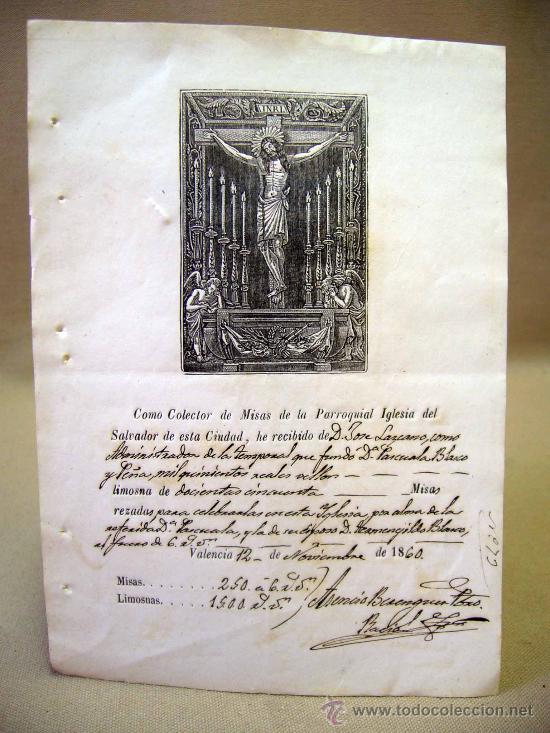 INRI
Como Colector de Misas de la Parroquial Iglesia del
Salvador de esta Ciudad, he recibido de D. Jose Lazcano, como
Administrador de la temporal que fundó Dª Pascuala Blasco
y Peña, mil quinientos reales vellon
limosna de docientas cincuenta Misas
rezadas para celebrarlas en esta Iglesia por alma de la
referida Dª Pascuala, y la de su esposo D. Hermenegildo Blasco,
al fuero de 6
Valencia 12 de Noviembre de 1860.
Misas. 250 á 6
Limosnas. 1500
Asencio Berenguer Pbro.
www.todocoleccion.net